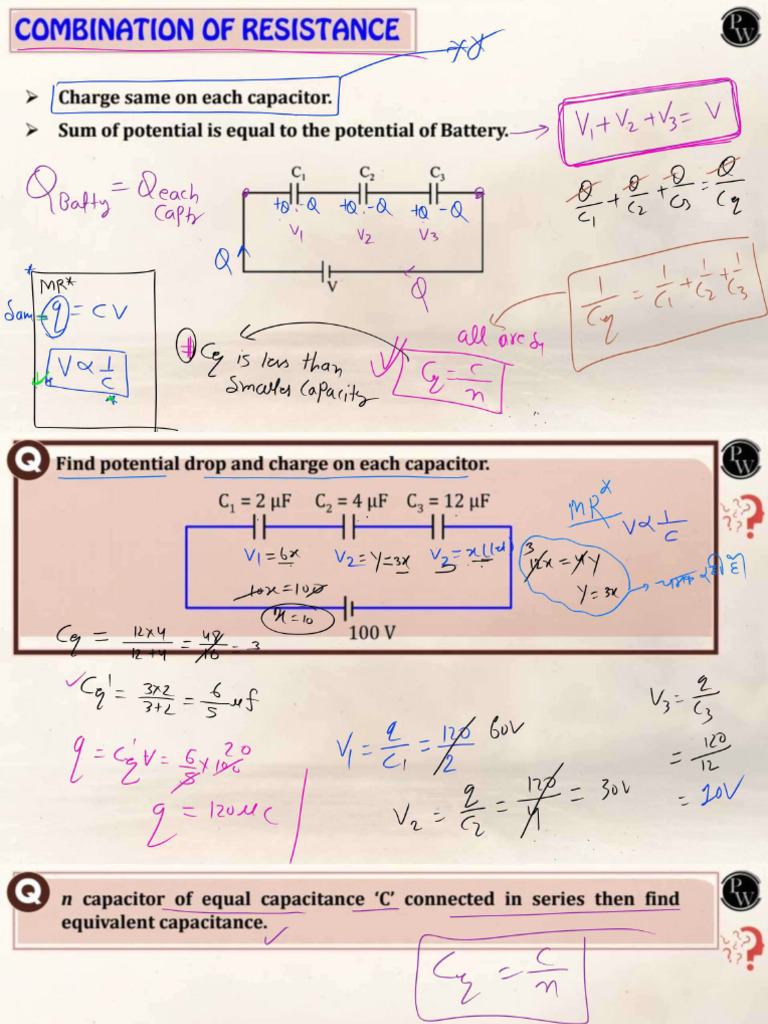 COMBINATION OF RESISTANCE
PW
➢ Charge same on each capacitor.
➢ Sum of potential is equal to the potential of Battery.
V₁ + V₂ + V₃ = V
Q/C₁ + Q/C₂ + Q/C₃ = Q/Cq
Q Batty = Q each captr
C₁ C₂ C₃
+Q -Q +Q -Q +Q -Q
V₁ V₂ V₃
Q
V
Q
1/Cq = 1/C₁ + 1/C₂ + 1/C₃
MR*
q = CV
V ∝ 1/C
Cq is less than
Smaller Capacity
Cq = C/n
Q Find potential drop and charge on each capacitor.
PW
C₁ = 2 μF C₂ = 4 μF C₃ = 12 μF
V₁ = 6x V₂ = y = 3x
10x = 100
x = 10
100 V
MR*
V ∝ 1/C
12x = 4y
y = 3x
Cq = 12×4/12+4 = 48/16 = 3
Cq' = 3×2/3+2 = 6/5 μf
q = Cq'V = 6/5 × 100 20
q = 120 μC
V₁ = q/C₁ = 120/2 60V
V₂ = q/C₂ = 120/4 = 30V
V₃ = q/C₃
= 120/12
= 10V
Q n capacitor of equal capacitance ‘C’ connected in series then find
equivalent capacitance.
PW
Cq = C/n